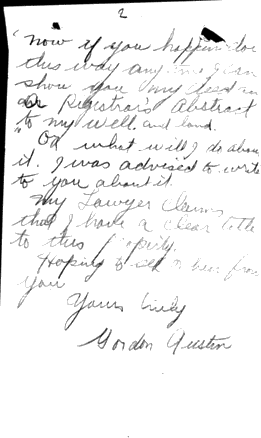 2
"Now if you happen to
this way any time I can
show you my deed or
a Registrar's Abstract
to my well, and land.
"Or what will I do about
it. I was advised to write
to you about it.
My Lawyer Claims
that I have a clear title
to this property.
Hoping to or hear from
you
Yours truly
Gordon Austin